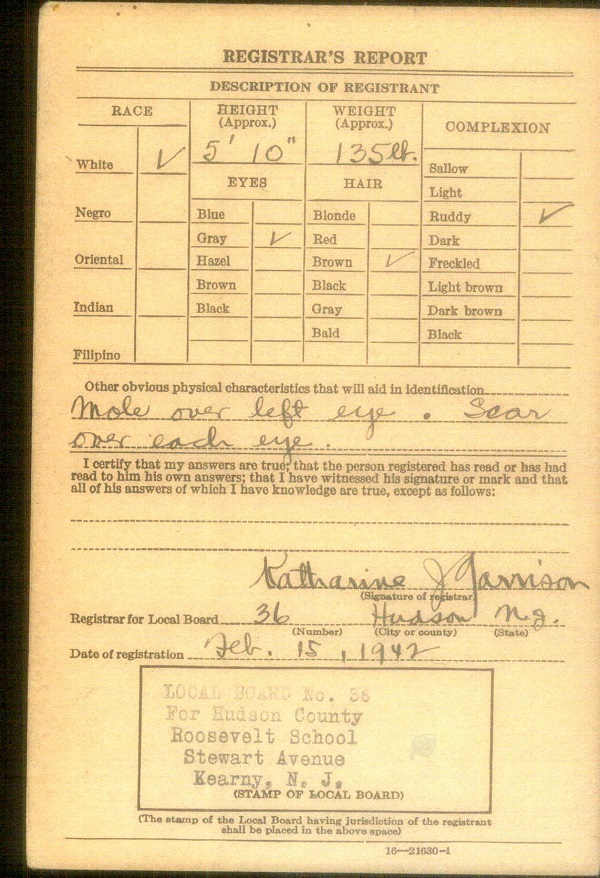 REGISTRAR'S REPORT
DESCRIPTION OF REGISTRANT
RACE
HEIGHT
(Approx.)
WEIGHT
(Approx.)
COMPLEXION
White ✓
5' 10"
135 lb.
Sallow
EYES
HAIR
Light
Negro
Blue
Blonde
Ruddy ✓
Gray ✓
Red
Dark
Oriental
Hazel
Brown ✓
Freckled
Brown
Black
Light brown
Indian
Black
Gray
Dark brown
Bald
Black
Filipino
Other obvious physical characteristics that will aid in identification
Mole over left eye. Scar
over each eye.
I certify that my answers are true; that the person registered has read or has had
read to him his own answers; that I have witnessed his signature or mark and that
all of his answers of which I have knowledge are true, except as follows:
Katharine J Garrison
(Signature of registrar)
Registrar for Local Board 36 Hudson N.J.
(Number) (City or county) (State)
Date of registration Feb. 15, 1942
LOCAL BOARD No. 36
For Hudson County
Roosevelt School
Stewart Avenue
Kearny, N. J.
(STAMP OF LOCAL BOARD)
(The stamp of the Local Board having jurisdiction of the registrant
shall be placed in the above space)
16—21630-1